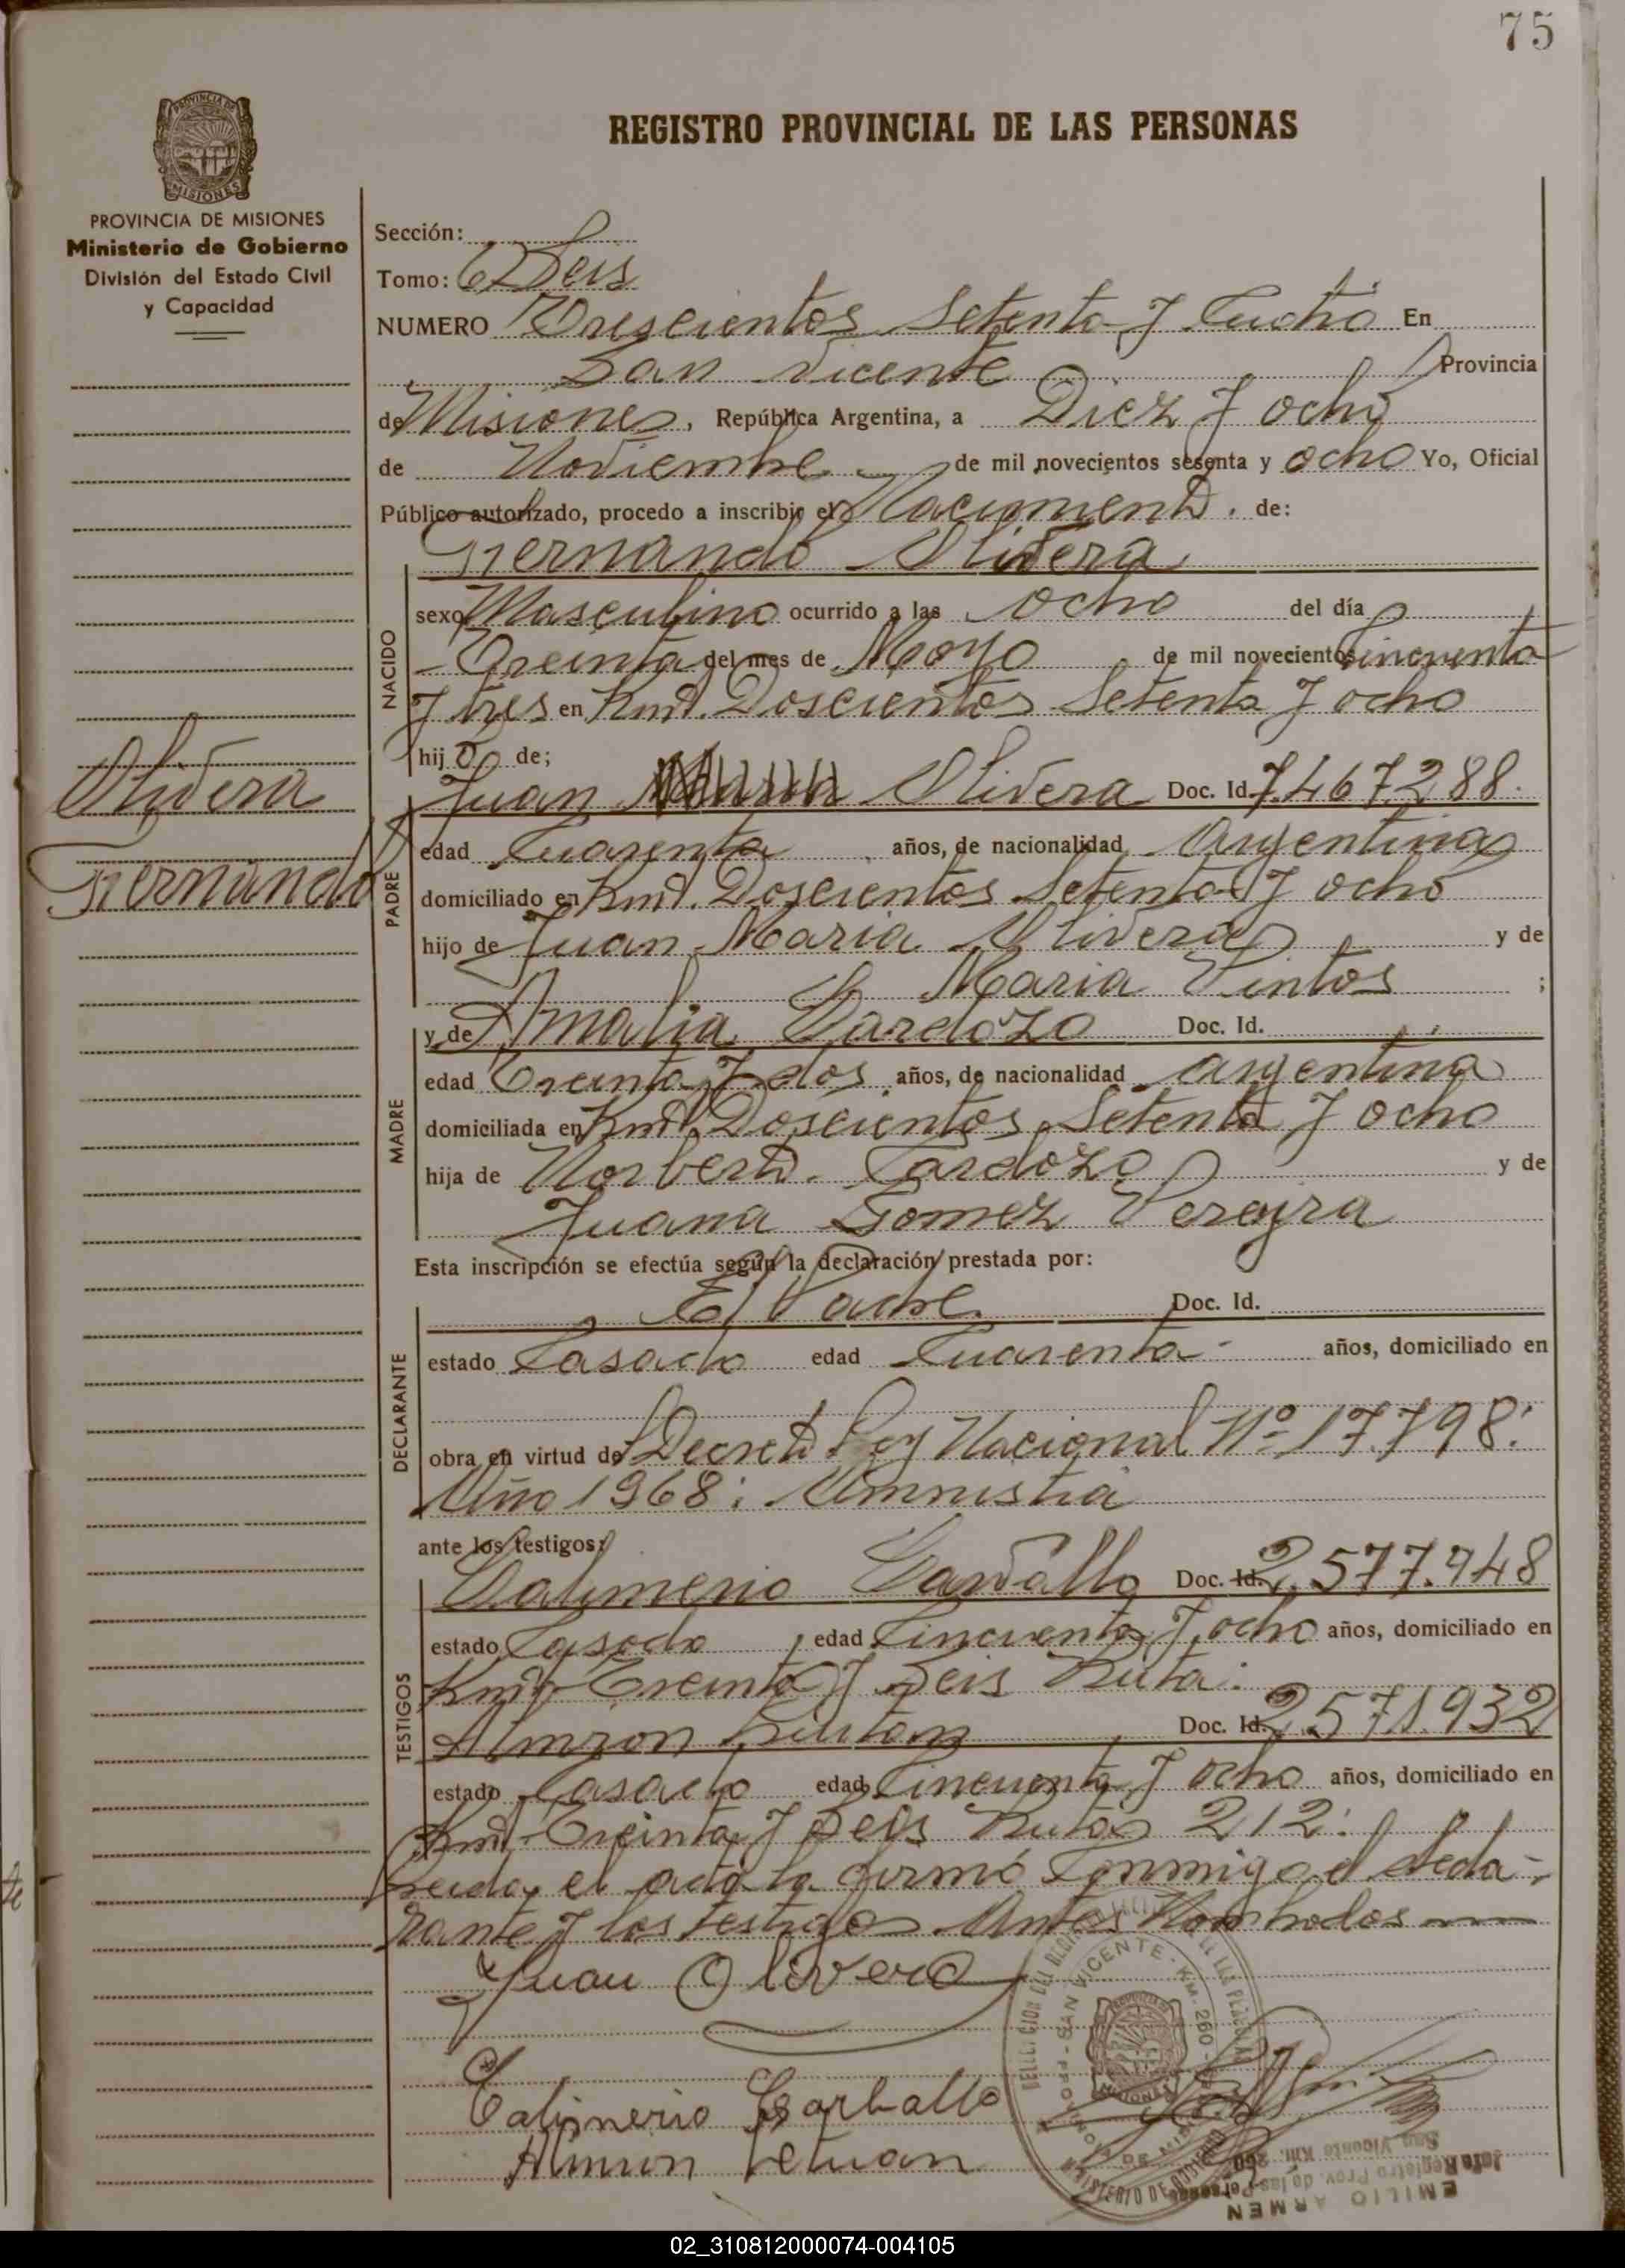 75
REGISTRO PROVINCIAL DE LAS PERSONAS
PROVINCIA DE MISIONES
Ministerio de Gobierno
División del Estado Civil
y Capacidad
Sección:
Tomo: 6 Seis
NUMERO Trescientos Setenta y Cuatro En
San Vicente Provincia
de Misiones, República Argentina, a Diez y ocho
de Noviembre de mil novecientos sesenta y ocho Yo, Oficial
Público autorizado, procedo a inscribir el Nacimiento de:
Fernando Olivera
NACIDO
sexo Masculino ocurrido a las ocho del día
Treinta del mes de Mayo de mil novecientos Cincuenta
y tres en Kmt. Doscientos Setenta y ocho
hijo de;
Olivera
Fernando
PADRE
Juan Olivera Doc. Id. 7.467.288.
edad Cuarenta años, de nacionalidad Argentina
domiciliado en Kmt. Doscientos Setenta y ocho
hijo de Juan Maria Olivera y de
Maria Pintos ;
MADRE
y de Amalia Cardozo Doc. Id.
edad Treinta y dos años, de nacionalidad argentina
domiciliada en Kmt. Doscientos Setenta y ocho
hija de Norberto Cardozo y de
Juana Gomez Pereyra
Esta inscripción se efectúa según la declaración prestada por:
DECLARANTE
El Padre. Doc. Id.
estado Casado edad Cuarenta años, domiciliado en
obra en virtud de Decreto Ley Nacional Nº 17.798:
Año 1968: Amnistia
ante los testigos:
TESTIGOS
Calimerio Carvallo Doc. Id. 2.577.948
estado Casado edad Cincuenta y ocho años, domiciliado en
Kmt Treinta y Seis Ruta.
Doc. Id. 2.571.932
estado Casado edad Cincuenta y ocho años, domiciliado en
Kmt. Treinta y Seis Ruta 212.
Leida el acta la firmó Conmigo el decla-
rante y los testigos Antes Nombrados
Juan Olivera
Calimerio Carballo
SAN VICENTE - KM. 260 - PROVINCIA DE MISIONES
EMILIO ARMEN
Jefe Registro Prov. de las Personas
San Vicente Km. 260
02_310812000074-004105